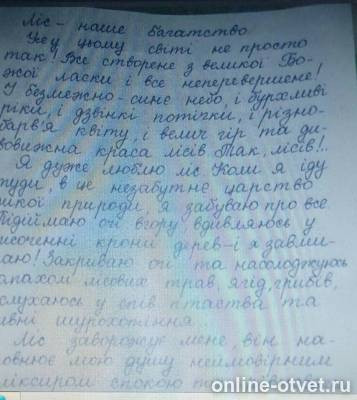 Ліс - наше багатство
Усе у цьому світі не просто
так! Все створене з великої Бо-
жої ласки і все неперевершене!
І безмежно-синє небо, і бурхливі
ріки, і дзвінкі потічки, і різно-
барв'я квіту, і велич гір та ди-
вовижна краса лісів. Так, лісів!..
Я дуже люблю ліс. Коли я іду
туди, в це незабутнє царство
дикої природи, я забуваю про все.
Підіймаю очі вгору вдивляюсь у
височенні крони дерев-і я завми-
раю! Закриваю очі та насолоджуюсь
запахом лісових трав, ягід, грибів,
слухаюсь у спів птаства та
дивні шурохотіння.
Ліс заворожує мене, він на-
повнює мою душу неймовірним
еліксиром спокою та
online-otvet.ru